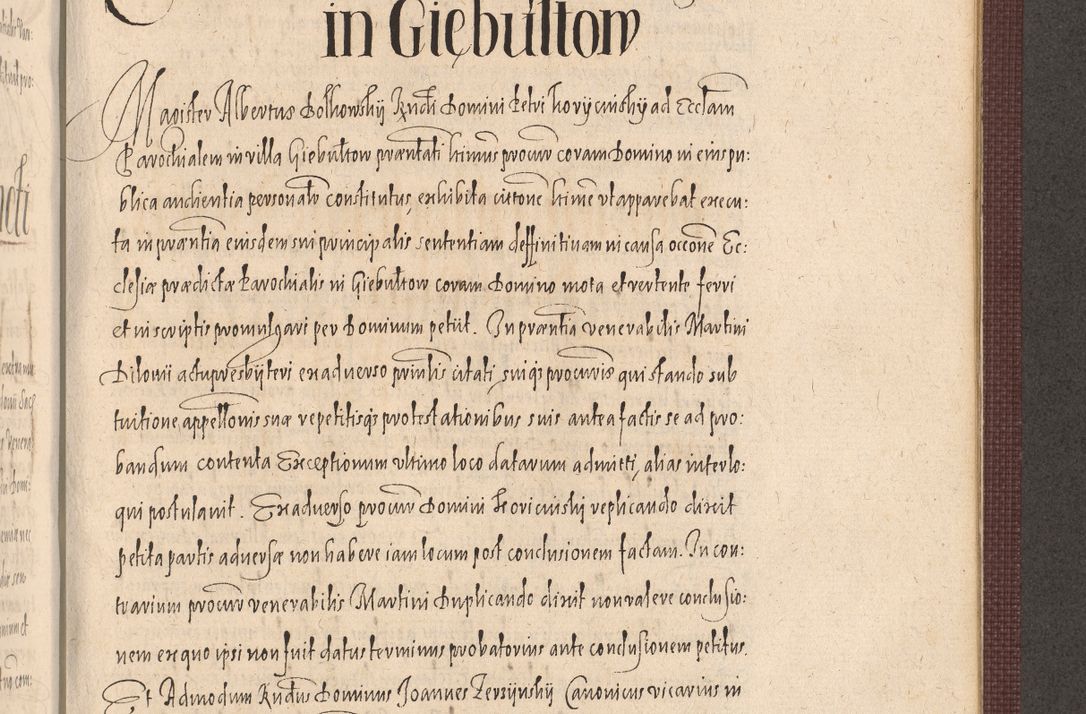 in Giębułtow
Magister Albertus Bolkowskÿ Rndi Domini Petri Korÿcinskÿ ad Ecclam
Parochialem in villa Giebułtow prntati ltimus procur coram Domino in eius pu:
blica audientia personalr constitutus, exhibita cittone ltime vt apparebat execu:
ta in prntia eiusdem sui principalis sententiam deffinitiuam in causa occone Ec:
clesiæ prædictæ Parochialis in Giebułtow coram Domino mota et vertente ferri
et in scriptis promulgari per Dominum petiit. In prntia venerabilis Martini
Bilonii actu presbÿteri ex aduerso prinlis citati, suiqs procuris qui stando sub
tuitione appellonis suæ repetitisqs protestationibus suis antea factis se ad pro:
bandum contenta Exceptionum vltimo loco datarum admitti, alias interlo:
qui postulauit. Ex aduerso procur Domini Koricinski replicando dixit
petita partis aduersæ non habere iam locum post conclusionem factam. In con:
trarium procur venerabilis Martini Duplicando dixit non valere conclusio:
nem ex quo ipsi non fuit datus terminus probatorius ante conclusionem petitus.
Et Admodum Rndus Dominus Joannes Zersÿnskÿ Canonicus vicarius in